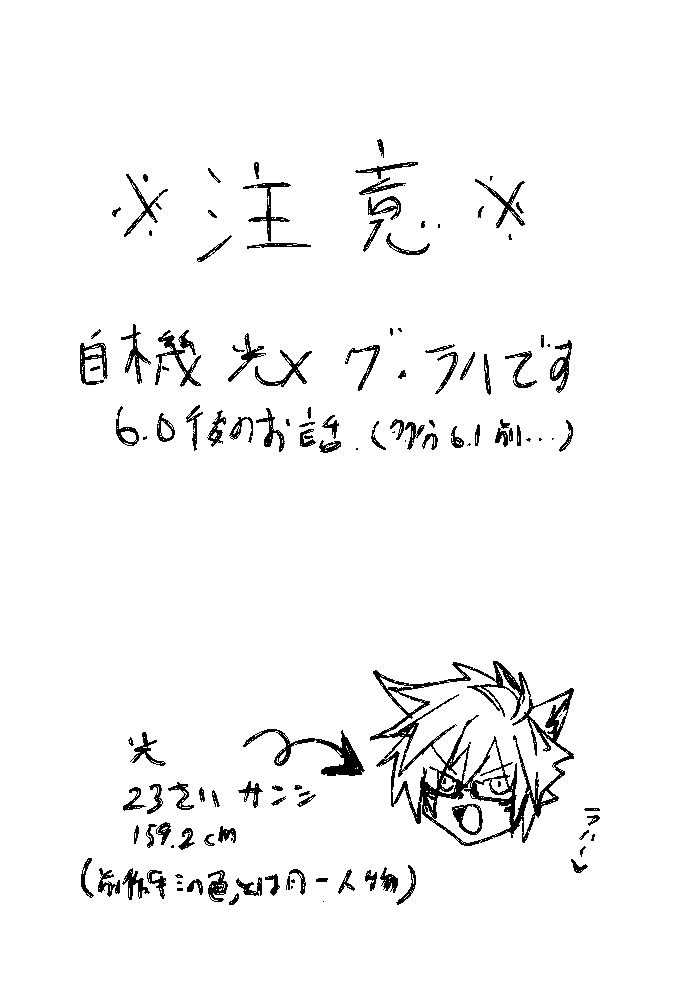 ※注意※
自機光×グ・ラハです
6.0後のお話(多分6.1前…)
光
23さい サンシ
159.2cm
(前作『この
とは同一人物)
ラハー